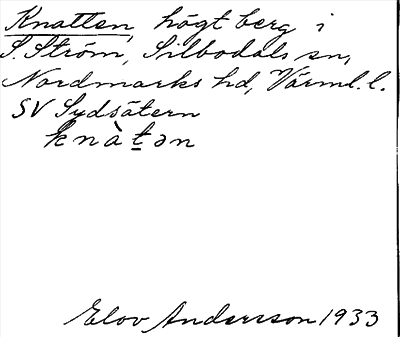 Knatten, högt berg i
S. Ström, Silbodals sn,
Nordmarks hd, Värml. l.
SV Sydsätern
knàt̲ən
Elov Andersson 1933